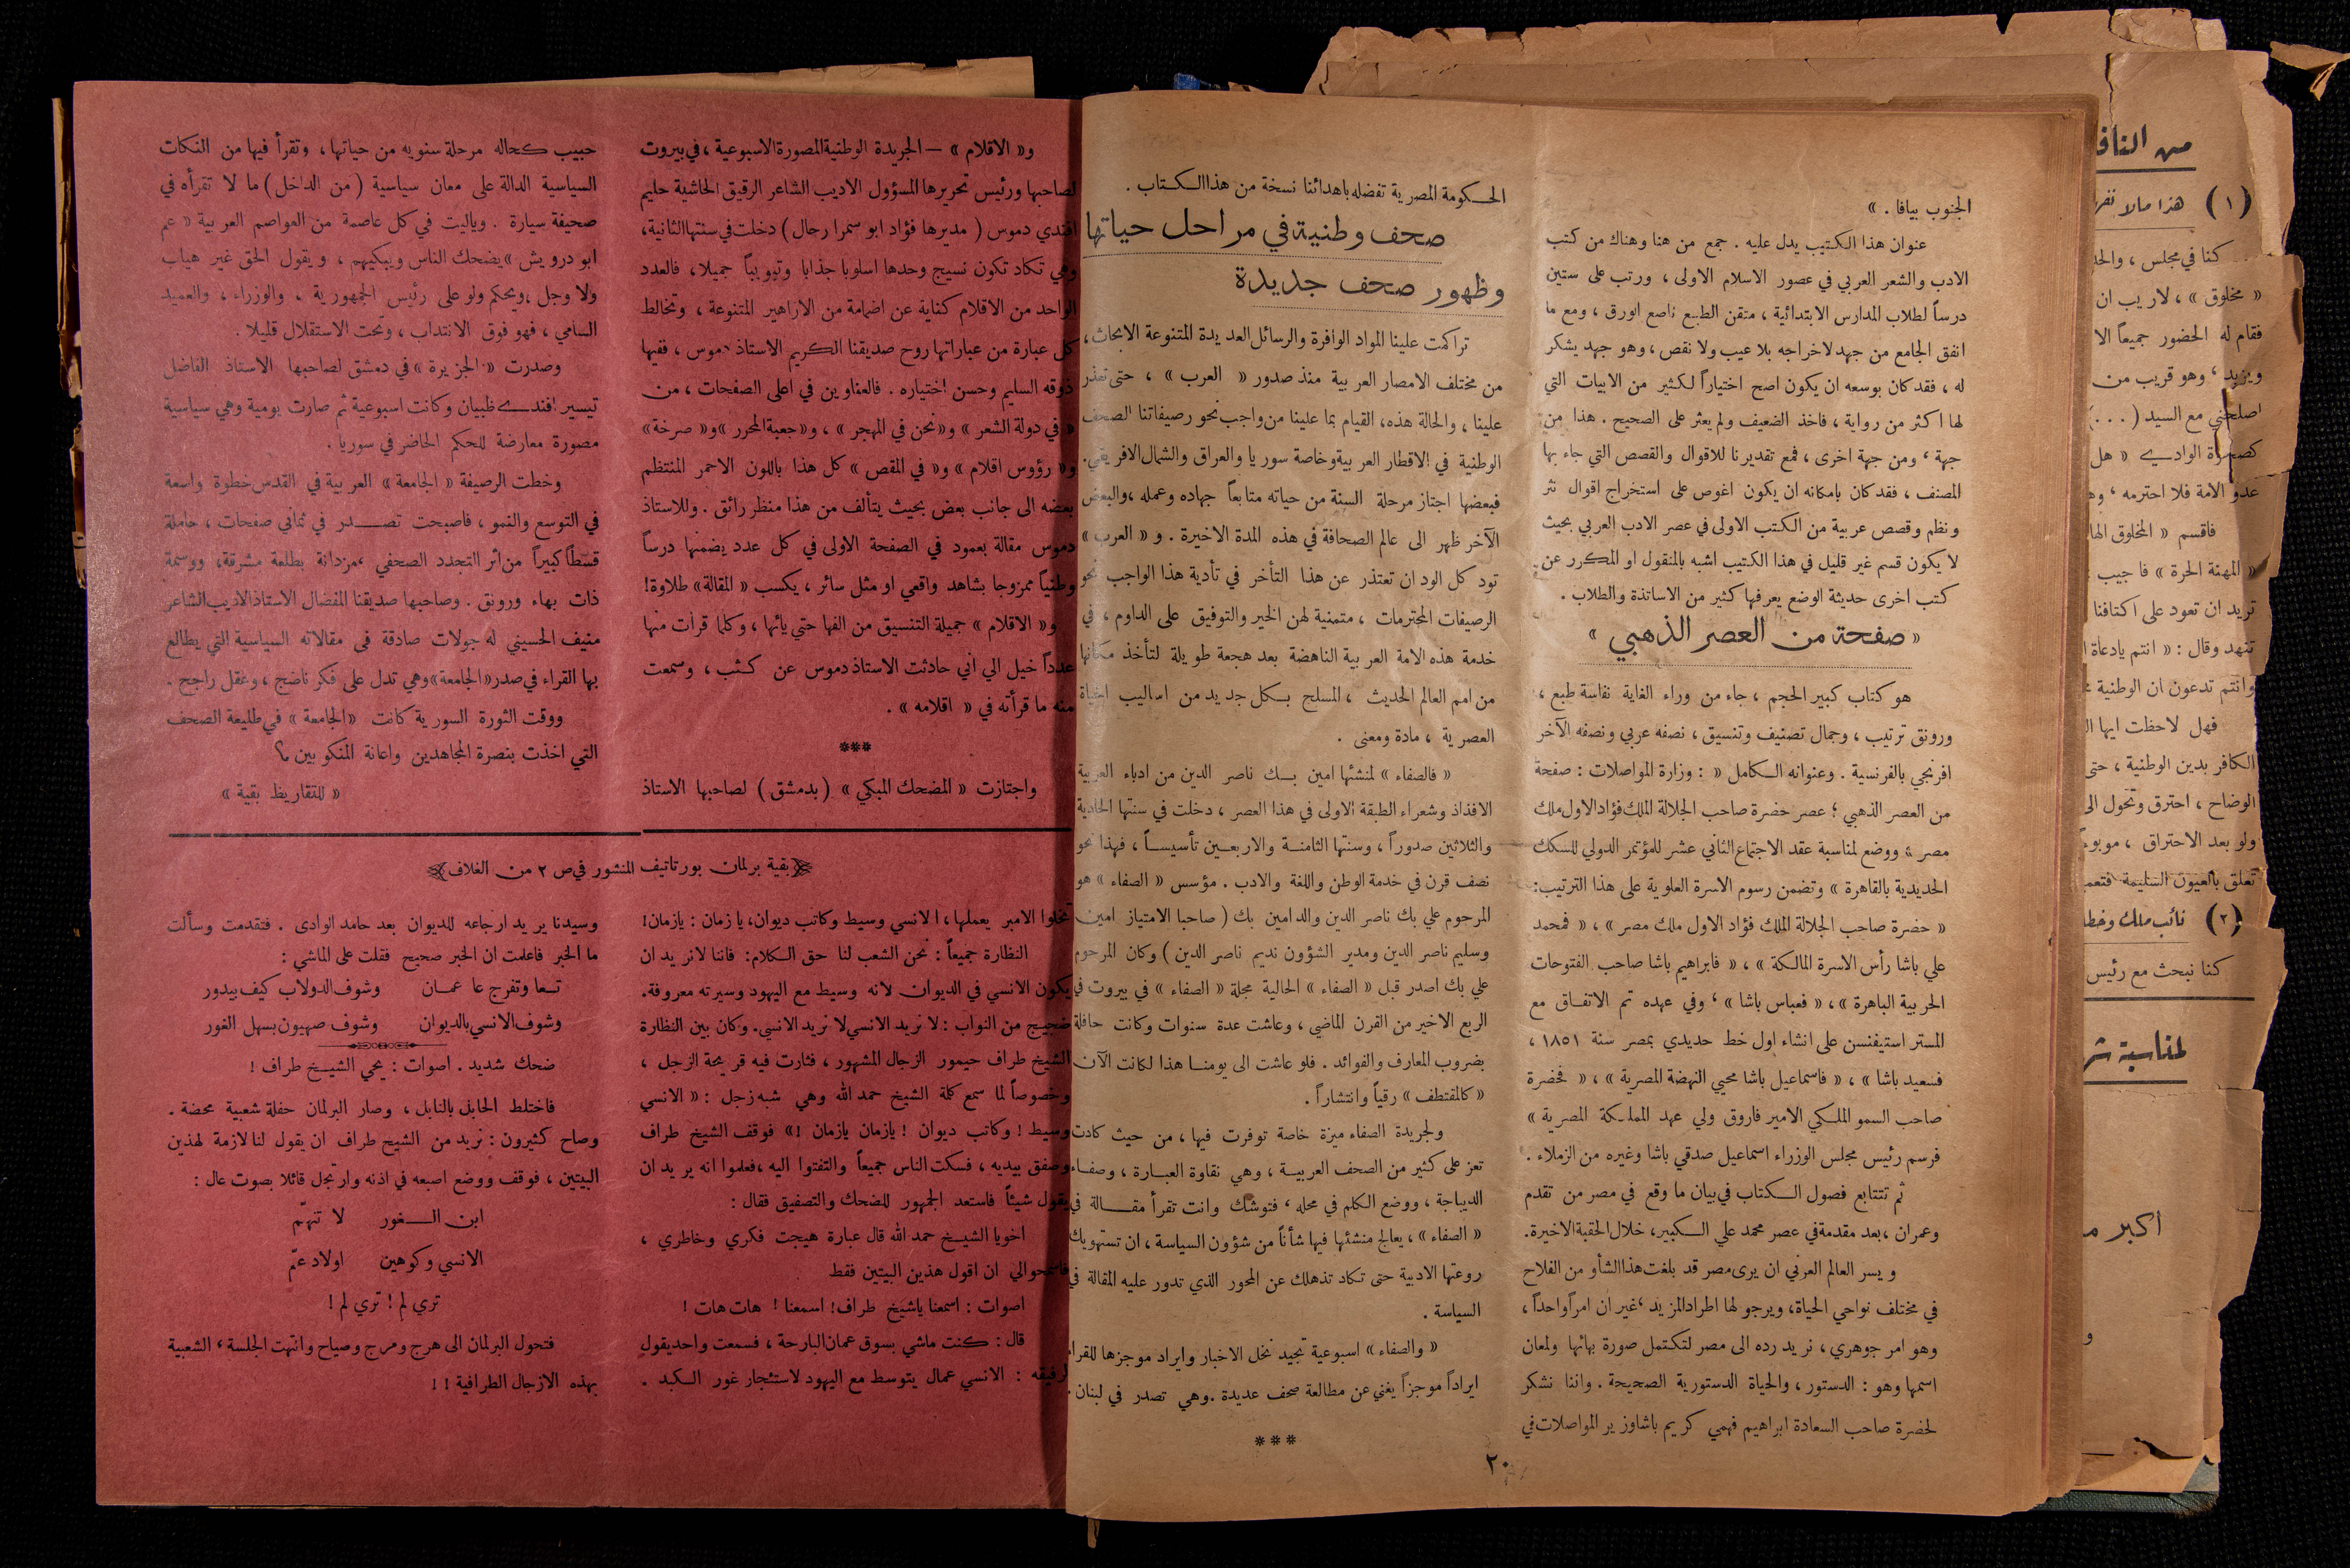 الجنوب بيافا . »
عنوان هذا الكتيب يدل عليه . جمع من هنا وهناك من كتب
الادب والشعر العربي في عصور الاسلام الاولى ، ورتب على ستين
درساً لطلاب المدارس الابتدائية ، متقن الطبع ناصع الورق ، ومع ما
انفق الجامع من جهد لاخراجه بلا عيب ولا نقص ، وهو جهد يشكر
له ، فقد كان بوسعه ان يكون اصح اختياراً لكثير من الابيات التي
لها اكثر من رواية ، فاخذ الضعيف ولم يعثر على الصحيح . هذا من
جهة ، ومن جهة اخرى ، فمع تقديرنا للاقوال والقصص التي جاء بها
المصنف ، فقد كان بامكانه ان يكون اغوص على استخراج اقوال نثر
ونظم وقصص عربية من الكتب الاولى في عصر الادب العربي بحيث
لا يكون قسم غير قليل في هذا الكتيب اشبه بالمنقول او المكرر عن
كتب اخرى حديثة الوضع يعرفها كثير من الاساتذة والطلاب .
« صفحة من العصر الذهبي »
هو كتاب كبير الحجم ، جاء من وراء الغاية نفاسة طبع ،
ورونق ترتيب ، وجمال تصنيف وتنسيق ، نصفه عربي ونصفه الآخر
افرنجي بالفرنسية . وعنوانه الكامل « : وزارة المواصلات : صفحة
من العصر الذهبي ؛ عصر حضرة صاحب الجلالة الملك فؤاد الاول ملك
مصر » ووضع لمناسبة عقد الاجتماع الثاني عشر للمؤتمر الدولي للسكك
الحديدية بالقاهرة » وتضمن رسوم الاسرة العلوية على هذا الترتيب :
« حضرة صاحب الجلالة الملك فؤاد الاول ملك مصر » ، « فمحمد
علي باشا رأس الاسرة المالكة » ، « فابراهيم باشا صاحب الفتوحات
الحربية الباهرة » ، « فعباس باشا » ، وفي عهده تم الاتفاق مع
المستر استيفنسن على انشاء اول خط حديدي بمصر سنة ١٨٥١ ،
فسعيد باشا » ، « فاسماعيل باشا محيي النهضة المصرية » ، « فحضرة
صاحب السمو الملكي الامير فاروق ولي عهد المملكة المصرية »
فرسم رئيس مجلس الوزراء اسماعيل صدقي باشا وغيره من الزملاء .
ثم تتتابع فصول الكتاب في بيان ما وقع في مصر من تقدم
وعمران ، بعد مقدمة في عصر محمد علي الكبير ، خلال الحقبة الاخيرة .
ويسر العالم العربي ان يرى مصر قد بلغت هذا الشأو من الفلاح
في مختلف نواحي الحياة ، ويرجو لها اطراد المزيد ، غير ان امراً واحداً ،
وهو امر جوهري ، نريد رده الى مصر لتكتمل صورة بهائها ولمعان
اسمها وهو : الدستور ، والحياة الدستورية الصحيحة . واننا نشكر
لحضرة صاحب السعادة ابراهيم فهمي كريم باشا وزير المواصلات في
الحكومة المصرية تفضله باهدائنا نسخة من هذا الكتاب .
صحف وطنية في مراحل حياتها
وظهور صحف جديدة
تراكمت علينا المواد الوافرة والرسائل العديدة المتنوعة الابحاث ،
من مختلف الامصار العربية منذ صدور « العرب » ، حتى تعذر
علينا ، والحالة هذه ، القيام بما علينا من واجب نحو رصيفاتنا الصحف
الوطنية في الاقطار العربية وخاصة سوريا والعراق والشمال الافريقي .
فبعضها اجتاز مرحلة السنة من حياته متابعاً جهاده وعمله ، والبعض
الآخر ظهر الى عالم الصحافة في هذه المدة الاخيرة . و « العرب »
تود كل الود ان تعتذر عن هذا التأخر في تأدية هذا الواجب نحو
الرصيفات المحترمات ، متمنية لهن الخير والتوفيق على الداوم ، في
خدمة هذه الامة العربية الناهضة بعد هجعة طويلة لتأخذ مكانها
من امم العالم الحديث ، المسلح بكل جديد من اساليب الحياة
العصرية ، مادة ومعنى .
« فالصفاء » لمنشئها امين بك ناصر الدين من ادباء العربية
الافذاذ وشعراء الطبقة الاولى في هذا العصر ، دخلت في سنتها الحادية
والثلاثين صدوراً ، وسنتها الثامنة والاربعين تأسيساً ، فهذا نحو
نصف قرن في خدمة الوطن واللغة والادب . مؤسس « الصفاء » هو
المرحوم علي بك ناصر الدين والد امين بك ( صاحبا الامتياز امين
وسليم ناصر الدين ومدير الشؤون نديم ناصر الدين ) وكان المرحوم
علي بك اصدر قبل « الصفاء » الحالية مجلة « الصفاء » في بيروت في
الربع الاخير من القرن الماضي ، وعاشت عدة سنوات وكانت حافلة
بضروب المعارف والفوائد . فلو عاشت الى يومنا هذا لكانت الآن
« كالمقتطف » رقياً وانتشاراً .
ولجريدة الصفاء ميزة خاصة توفرت فيها ، من حيث كادت
تعز على كثير من الصحف العربية ، وهي نقاوة العبارة ، وصفاء
الديباجة ، ووضع الكلم في محله ، فتوشك وانت تقرأ مقالة في
« الصفاء » ، يعالج منشئها فيها شأناً من شؤون السياسة ، ان تستهويك
روعتها الادبية حتى تكاد تذهلك عن المحور الذي تدور عليه المقالة في
السياسة .
« والصفاء » اسبوعية تجيد نخل الاخبار وايراد موجزها للقراء
ايراداً موجزاً يغني عن مطالعة صحف عديدة . وهي تصدر في لبنان .
***
٢٠
و « الاقلام » — الجريدة الوطنية المصورة الاسبوعية ، في بيروت
لصاحبها ورئيس تحريرها المسؤول الاديب الشاعر الرقيق الحاشية حليم
افندي دموس ( مديرها فؤاد ابو سمرا رجال ) دخلت في سنتها الثانية ،
وهي تكاد تكون نسيج وحدها اسلوبا جذابا وتبويباً جميلا ، فالعدد
الواحد من الاقلام كناية عن اضمامة من الازاهير المتنوعة ، وتخالط
كل عبارة من عباراتها روح صديقنا الكريم الاستاذ دموس ، ففيها
ذوقه السليم وحسن اختياره . فالعناوين في اعلى الصفحات ، من
« في دولة الشعر » و « نحن في المهجر » ، و « جعبة المحرر » و « صرخة »
و « رؤوس اقلام » و « في المقص » كل هذا باللون الاحمر المنتظم
بعضه الى جانب بعض بحيث يتألف من هذا منظر رائق . وللاستاذ
دموس مقالة بعمود في الصفحة الاولى في كل عدد يضمنها درساً
وطنياً ممزوجا بشاهد واقعي او مثل سائر ، يكسب « المقالة » طلاوة !
و « الاقلام » جميلة التنسيق من الفها حتى يائها ، وكلما قرات منها
عدداً خيل الي اني حادثت الاستاذ دموس عن كثب ، وسمعت
منه ما قرأته في « اقلامه » .
***
واجتازت « المضحك المبكي » ( بدمشق ) لصاحبها الاستاذ
حبيب كحاله مرحلة سنويه من حياتها ، وتقرأ فيها من النكات
السياسية الدالة على معان سياسية ( من الداخل ) ما لا تقرأه في
صحيفة سيارة . وياليت في كل عاصمة من العواصم العربية « عم
ابو درويش » يضحك الناس ويبكيهم ، ويقول الحق غير هياب
ولا وجل ، ويحكم ولو على رئيس الجمهورية ، والوزراء ، والعميد
السامي ، فهو فوق الانتداب ، وتحت الاستقلال قليلا .
وصدرت « الجزيرة » في دمشق لصاحبها الاستاذ الفاضل
تيسير افندي ظبيان وكانت اسبوعية ثم صارت يومية وهي سياسية
مصورة معارضة للحكم الحاضر في سوريا .
وخطت الرصيفة « الجامعة » العربية في القدس خطوة واسعة
في التوسع والنمو ، فاصبحت تصدر في ثماني صفحات ، حاملة
قسطاً كبيراً من اثر التجدد الصحفي ، مزدانة بطلعة مشرقة ، ووسمة
ذات بهاء ورونق . وصاحبها صديقنا المفضال الاستاذ الاديب الشاعر
منيف الحسيني له جولات صادقة في مقالاته السياسية التي يطالع
بها القراء في صدر « الجامعة » وهي تدل على فكر ناضج ، وعقل راجح .
ووقت الثورة السورية كانت « الجامعة » في طليعة الصحف
التي اخذت بنصرة المجاهدين واعانة المنكوبين
« للتقاريظ بقية »
بقية برلمان بورتاتيف المنشور في ص ٢ من الغلاف
تخلوا الامير يعملها ، الانسي وسيط وكاتب ديوان ، يا زمان : يازمان !
النظارة جميعاً : نحن الشعب لنا حق الكلام : فاننا لا نريد ان
يكون الانسي في الديوان لانه وسيط مع اليهود وسيرته معروفة .
ضجيج من النواب : لا نريد الانسي لا نريد الانسي . وكان بين النظارة
الشيخ طراف حيمور الزجال المشهور ، فثارت فيه قريحة الزجل ،
وخصوصاً لما سمع كلمة الشيخ حمد الله وهي شبه زجل : « الانسي
وسيط ! وكاتب ديوان ! يازمان يازمان ! » فوقف الشيخ طراف
وصفق بيديه ، فسكت الناس جميعاً والتفتوا اليه ، فعلموا انه يريد ان
يقول شيئاً فاستعد الجمهور للضحك والتصفيق فقال :
اخويا الشيخ حمد الله قال عبارة هيجت فكري وخاطري ،
فاسمحوالي ان اقول هذين البيتين فقط
اصوات : اسمعنا ياشيخ طراف ! اسمعنا ! هات هات !
قال : كنت ماشي بسوق عمان البارحة ، فسمعت واحد يقول
لرفيقه : الانسي عمال يتوسط مع اليهود لاستئجار غور الكبد .
وسيدنا يريد ارجاعه للديوان بعد حامد الوادى . فتقدمت وسألت
ما الخبر فاعلمت ان الخبر صحيح فقلت على الماشي :
تعا وتفرج عا عمان وشوف الدولاب كيف بيدور
وشوف الانسي بالديوان وشوف صهيون بسهل الغور
ضحك شديد . اصوات : يحي الشيخ طراف !
فاختلط الحابل بالنابل ، وصار البرلمان حفلة شعبية محضة .
وصاح كثيرون : نريد من الشيخ طراف ان يقول لنا لازمة لهذين
البيتين ، فوقف ووضع اصبعه في اذنه وارتجل قائلا بصوت عال :
ابن الغور لا تهتم
الانسي وكوهين اولاد عم
تري لم ! تري لم !
فتحول البرلمان الى هرج ومرج وصياح وانتهت الجلسة ، الشعبية
بهذه الازجال الطرافية ! !
(١) هذا مالا
كنا في مجلس ، والحد
« مخلوق » ، لاريب ان
فقام له الحضور جميعاً الا
ويزيد ، وهو قريب من
اصلحني مع السيد ( . . . )
الوادي « هل
عدو الامة فلا احترمه ،
فاقسم « المخلوق
« المهنة الحرة » فاجيب
تريد ان تعود على اكتافنا
تنهد وقال : « انتم يادعاة
وانتم تدعون ان الوطنية
فهل لاحظت ايها
الكافر بدين الوطنية ، حتى
الوضاح ، احترق وتحول الى
ولو بعد الاحتراق ،
تعلق بالعيون السليمة
(٢) نائب ملك
كنا نبحث مع رئيس
لمناسبة
أكبر